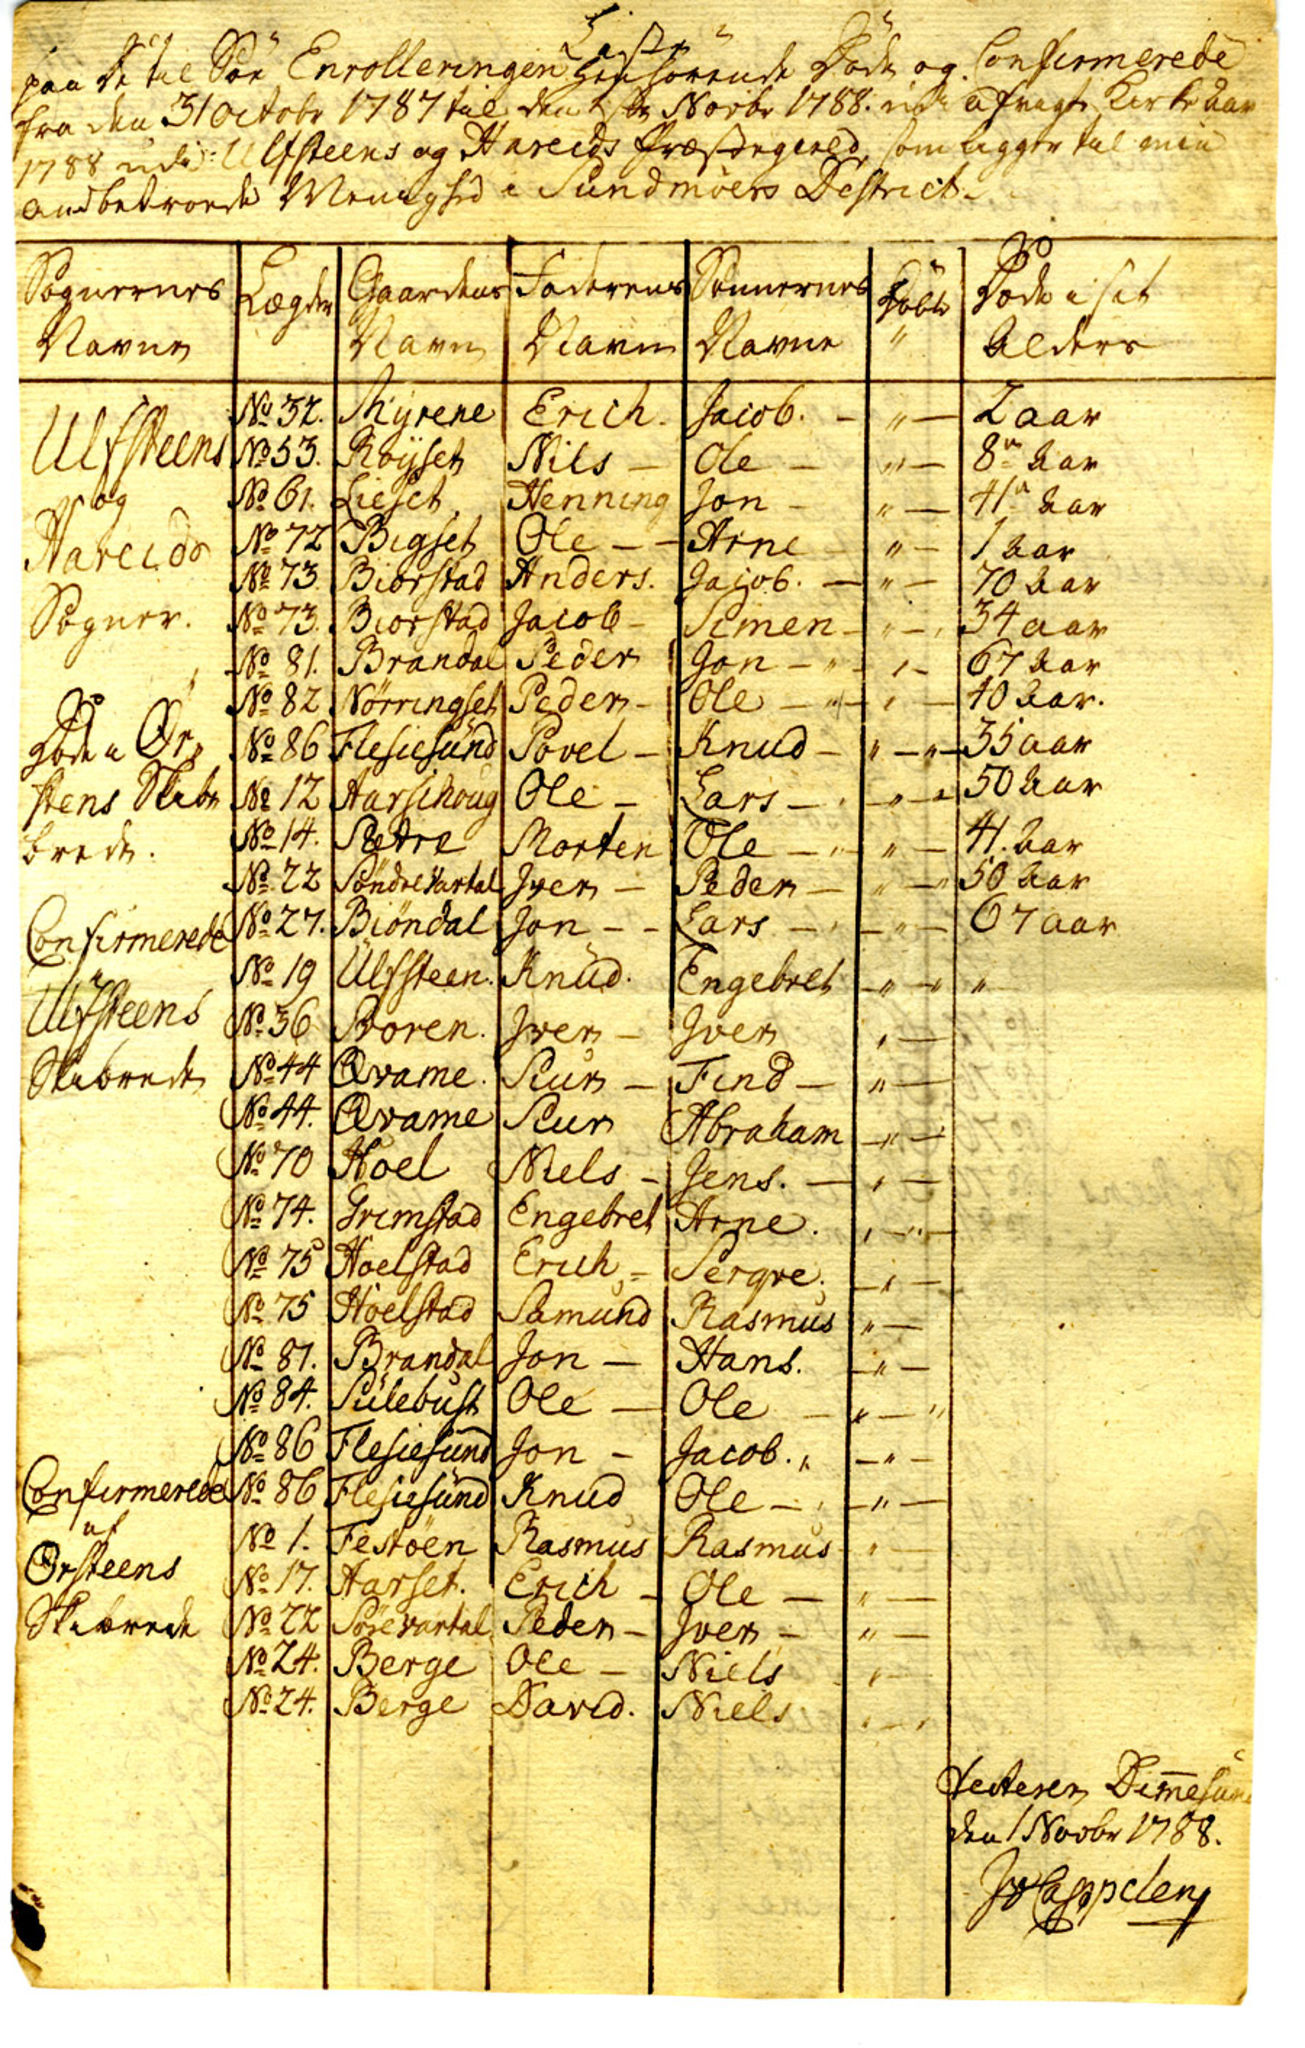 Liste
paa de til Söe Enrolleringen Henhörende Döde og Confirmerede
fra den 31 Octobr 1787 til den 1 Novbr 1788. udi afvigte Kirke Aar
1788 udi Ulfsteens og Hareids Præstegield, som ligger til min
andbetroede Menighed i Sundmöers District.
Sognernes Navne Lægder Gaardens Navn Faderens Navn Sönnernes Navne Döbte Döde i sit Alders
Ulfsteens No 32. Myrene Erich. Jacob. - " - 2 aar
No 53. Röyset Nils - Ole - " - 8 Aar
og No 61. Lieset Henning Jon - " - 41 Aar
Hareids No 72 Bigset Ole - - Arne - " - 1 Aar
No 73. Biorstad Anders. Jacob. - " - 70 Aar
Sogner. No 73. Biorstad Jacob - Simen - " - 34 aar
No 81. Brandal Peder Jon - " - 67 Aar
No 82 Nörringset Peder - Ole - " - 40 Aar.
Döde i Ør- No 86 Flesiesund Povel - Knud - " - " - 35 aar
stens Skib- No 12 Harsihoug Ole - Lars - " - 50 Aar
brede. No 14. Sætre Morten Ole - " - 41. Aar
No 22 Söndrevartal Iver - Peder - " - 50 Aar
Confirmerede No 27. Biöndal Jon - - Lars - " - 67 aar
i No 19 Ulfsteen. Knud. Engebret - " - "
Ulfsteens No 36 Storen. Iver - Iver " -
Skibrede No 44 Qvame. Siur - Find - " -
No 44. Qvame Siur Abraham - " -
No 70 Hoel Niels - Jens. - " -
No 74. Grimstad Engebret Arne. " - " -
No 75 Hoelstad Erich - Sergve. - " -
No 75 Hoelstad Samund Rasmus " -
No 81. Brandal Jon - Hans. - " -
No 84. Sulebust Ole - Ole - " - "
No 86 Flesiesund Jon - Jacob. " - " -
Confirmerede No 86 Flesiesund Knud Ole - " - " -
af No 1. Festöen Rasmus Rasmus " -
Ørsteens No 17. Harset. Erich - Ole - " -
Skibrede No 22 Sörevartal Peder - Iver - " -
No 24. Berge Ole - Niels " -
No 24. Berge David. Niels " - "
Testerer Dimmesund
den 1 Novbr 1788.
Cappelen